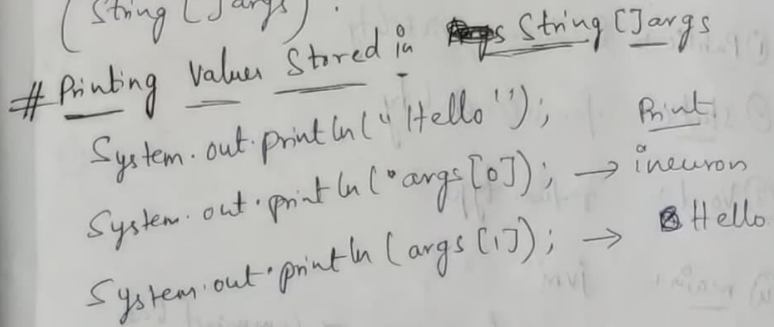 (String []args).
# Printing values Stored in String []args
System.out.println("Hello"); Print
System.out.println(args[0]); → ineuron
System.out.println(args[1]); → Hello